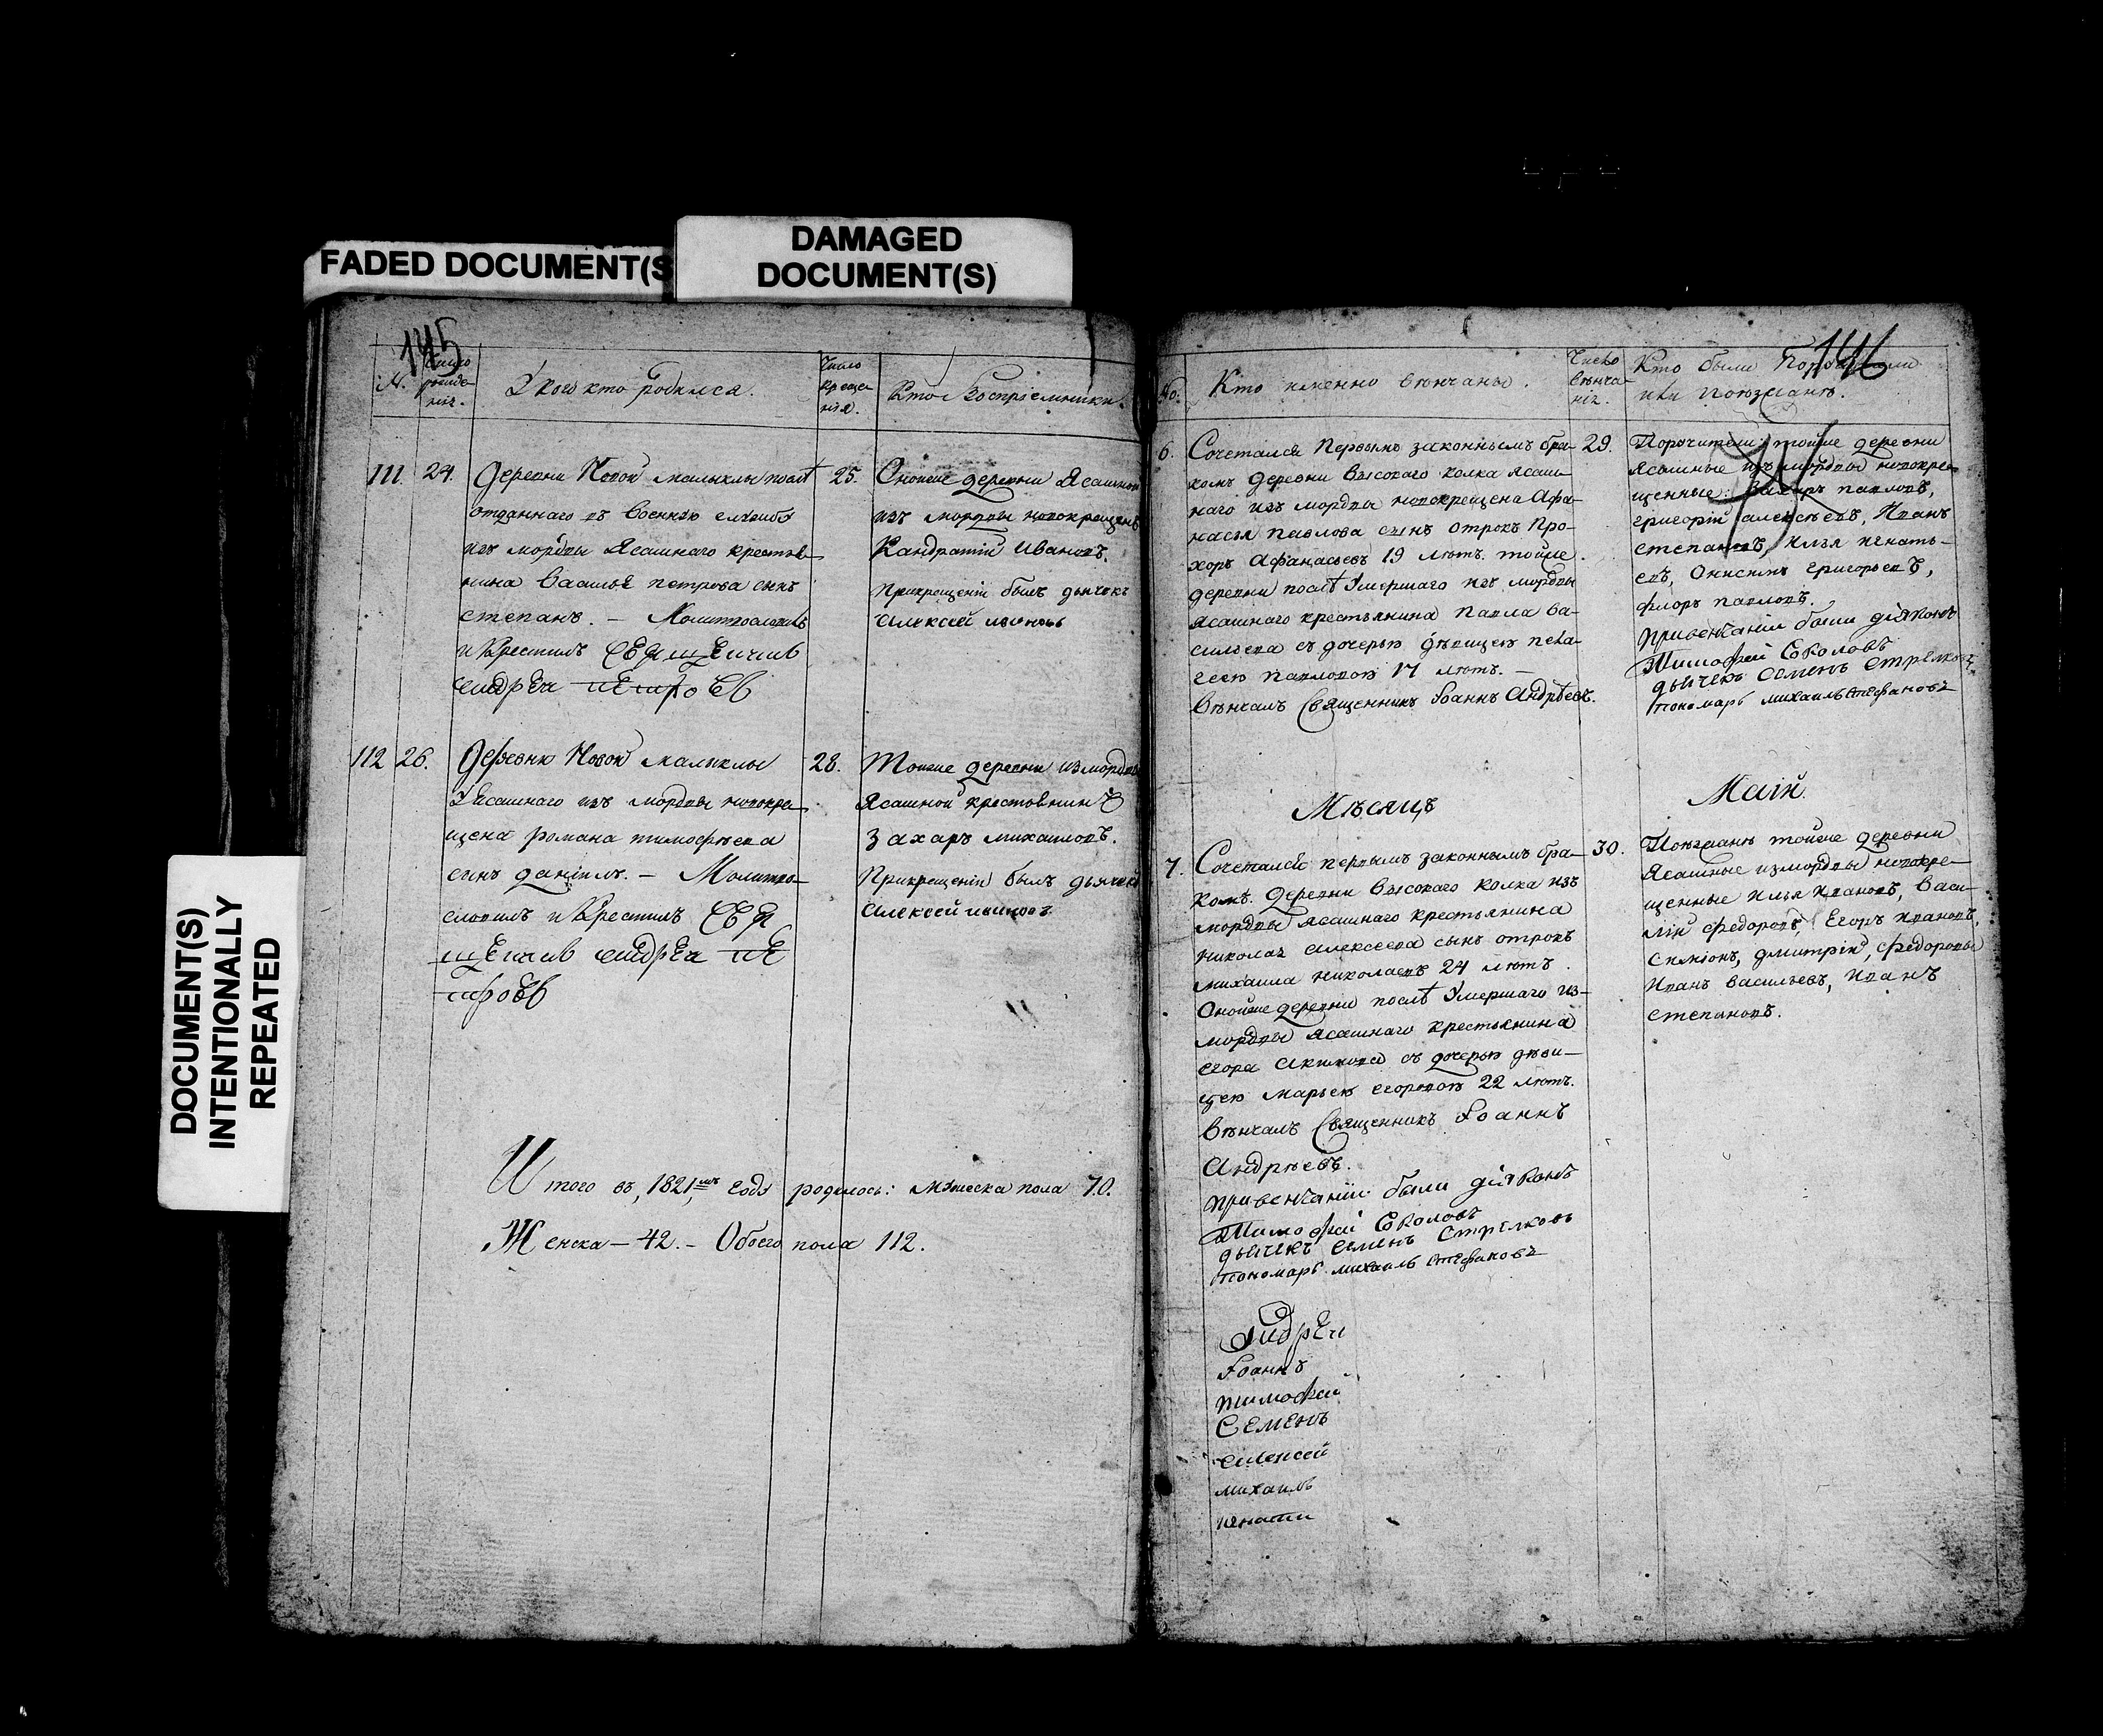 FADED DOCUMENT(S
DAMAGED
DOCUMENT(S)
DOCUMENT(S)
INTENTIONALLY
REPEATED
145
№.
Число рожде-
нія.
У кого кто родился.
Число
крещe-
нія.
Кто Воспріемники.
111
24.
Деревни Новой малыклы послѣ
отданнаго въ военную службу
изъ мордвы Ясашнаго крестья-
нина Василья петрова сынъ
степанъ. – Молитвословилъ
и Крестилъ Священникъ
андреи петровъ
25.
Оной же деревни Ясашной
изъ мордвы новокрещенъ
Кандратій Ивановъ.
При крещеніи былъ дьячокъ
алексей
112
26.
Деревню Новой малыклы
У Ясашнаго изъ мордвы новокре-
щена романа тимофѣева
сынъ даніилъ. – Молитво-
словилъ и Крестилъ Свя
щенникъ андреи пе
тровъ
28.
Тойже деревни из мордвы
Ясашной крестьянинъ
Захаръ михаиловъ.
При крещеніи былъ дьячокъ
алексей
Итого въ 1821мъ годѣ родилось: мужеска пола 70.
Женска – 42. – Обоего пола 112.
146
№.
Кто именно вѣнчаны.
Число
вѣнча-
нія.
Кто были
или поѣзжанѣ.
6.
Сочетался Первымъ законнымъ бра-
комъ деревни Высокаго колка ясаш-
наго изъ мордвы новокрещена Афа-
насья павлова сынъ отрокъ Про-
хоръ Афанасьевъ 19 лѣтъ. тойже
деревни послѣ Умершаго изъ мордвы
ясашнаго крестьянина павла ва-
сильева съ дочерью дѣвицею пела-
геею павловою 17 лѣтъ. –
Вѣнчалъ Священникъ Іоаннъ Андрѣевъ.
29.
Поручители: тойже деревни
Ясашные изъ мордвы новокре-
щенные: Захаръ павловъ,
григорій алексѣевъ, Иванъ
степановъ, илья игнать-
евъ, Онисимъ григорьевъ,
флоръ павловъ.
При венчаніи были діяконъ
Тимофей Соколовъ
дьячекъ Семенъ Стрелковъ
пономарь михаилъ стефановъ
Мѣсяцъ
Маій.
7.
Сочетался первымъ законнымъ бра-
комъ. деревни Высокаго колка изъ
мордвы ясашнаго крестьянина
николая алексеева сынъ отрокъ
михаила николаевъ 24 лѣтъ.
Оной же деревни послѣ Умершаго из-
мордвы ясашнаго крестьянина
егора акимова съ дочерью дѣви-
цею марьею егоровою 22 лѣтъ.
Вѣнчалъ Священникъ Іоаннъ
Андрѣевъ.
При венчаніи были діяконъ
Тимофей Соколовъ
дьячекъ Семенъ Стрелковъ
пономарь михаилъ стефановъ
30.
Поѣзжанѣ тойже деревни
Ясашные из мордвы новокре-
щенные илья ивановъ, васи-
лій федоровъ, Егоръ ивановъ,
Симіонъ, дмитрій, федоровы
Иванъ васильевъ, Иванъ
степановъ.
Андреи
Іоаннъ
тимофеи
Семенъ
алексей
михаилъ
игнати